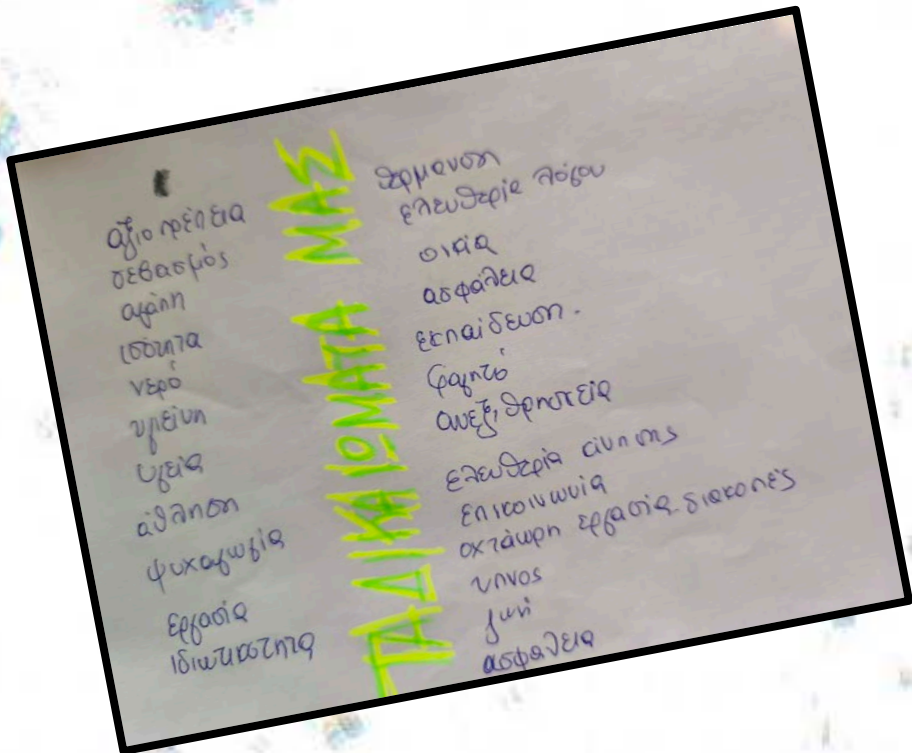 ΤΑ ΔΙΚΑΙΩΜΑΤΑ ΜΑΣ
αξιοπρέπεια
σεβασμός
αγάπη
ισότητα
νερό
υγιείνη
υγεία
άθληση
ψυχαγωγία
εργασία
ιδιωτικότητα
θέρμανση
ελευθερία λόγου
οικία
ασφάλεια
εκπαίδευση.
φαγητό
ανεξιθρησκεία
ελευθερία κίνησης
επικοινωνία
οχτάωρη εργασία διακοπές
υπνος
ζωή
ασφαλεια